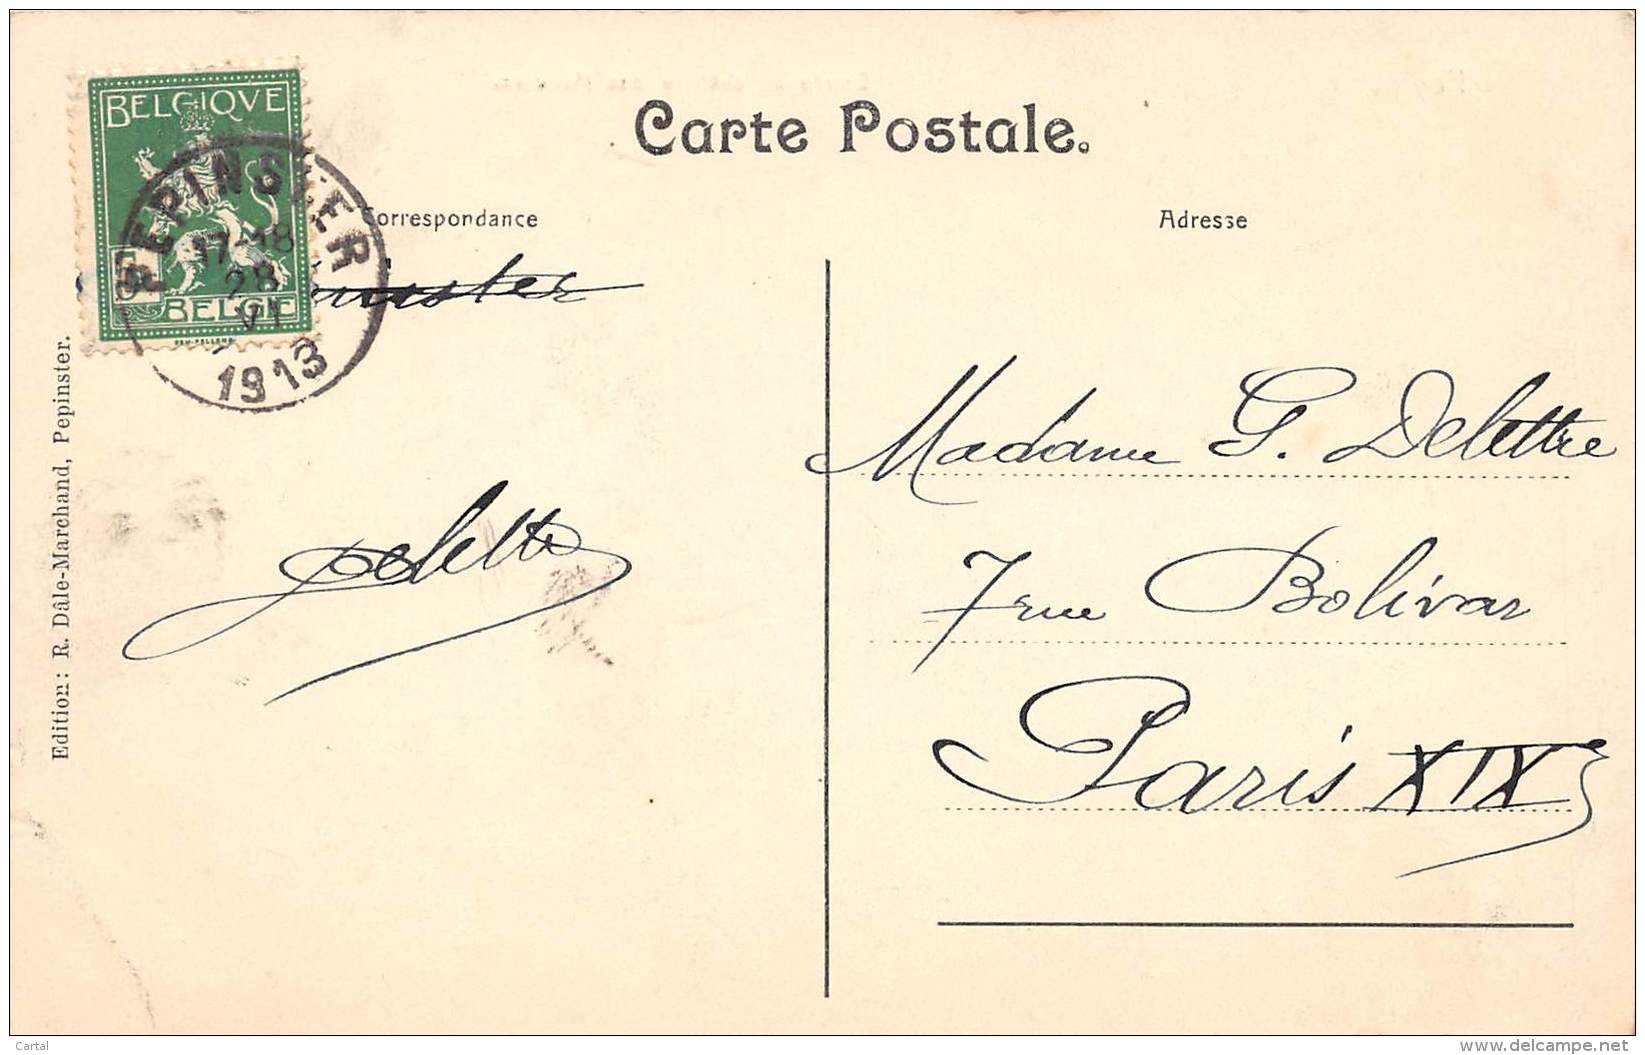 BELGIQVE
5
BELGIË
PEPINSTER
17-18
28
VI
1913
Carte Postale.
Correspondance
Adresse
Delettre
Madame G. Delettre
7 rue Bolivar
Paris XIX
Edition: R. Dâle-Marchand, Pepinster.
Cartal
delcampe.net